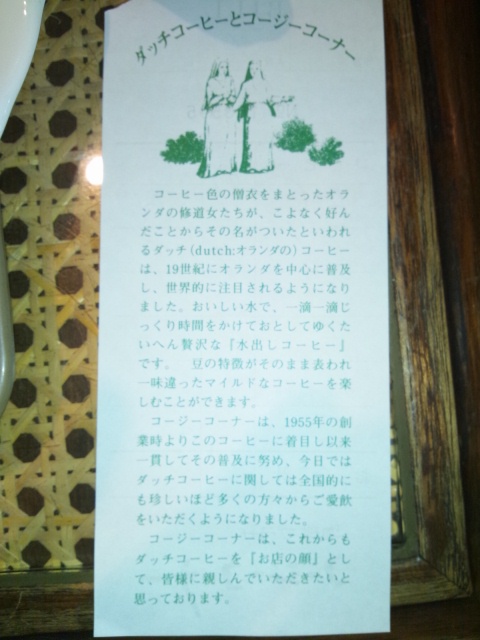 ダッチコーヒーとコージーコーナー
コーヒー色の僧衣をまとったオラ
ンダの修道女たちが、こよなく好ん
だことからその名がついたといわれ
るダッチ(dutch:オランダの)コーヒー
は、19世紀にオランダを中心に普及
し、世界的に注目されるようになり
ました。おいしい水で、一滴一滴じ
っくり時間をかけておとしてゆくた
いへん贅沢な『水出しコーヒー』
です。 豆の特徴がそのまま表われ
一味違ったマイルドなコーヒーを楽
しむことができます。
コージーコーナーは、1955年の創
業時よりこのコーヒーに着目し以来
一貫してその普及に努め、今日では
ダッチコーヒーに関しては全国的に
も珍しいほど多くの方々からご愛飲
をいただくようになりました。
コージーコーナーは、これからも
ダッチコーヒーを『お店の顔』とし
て、皆様に親しんでいただきたいと
思っております。